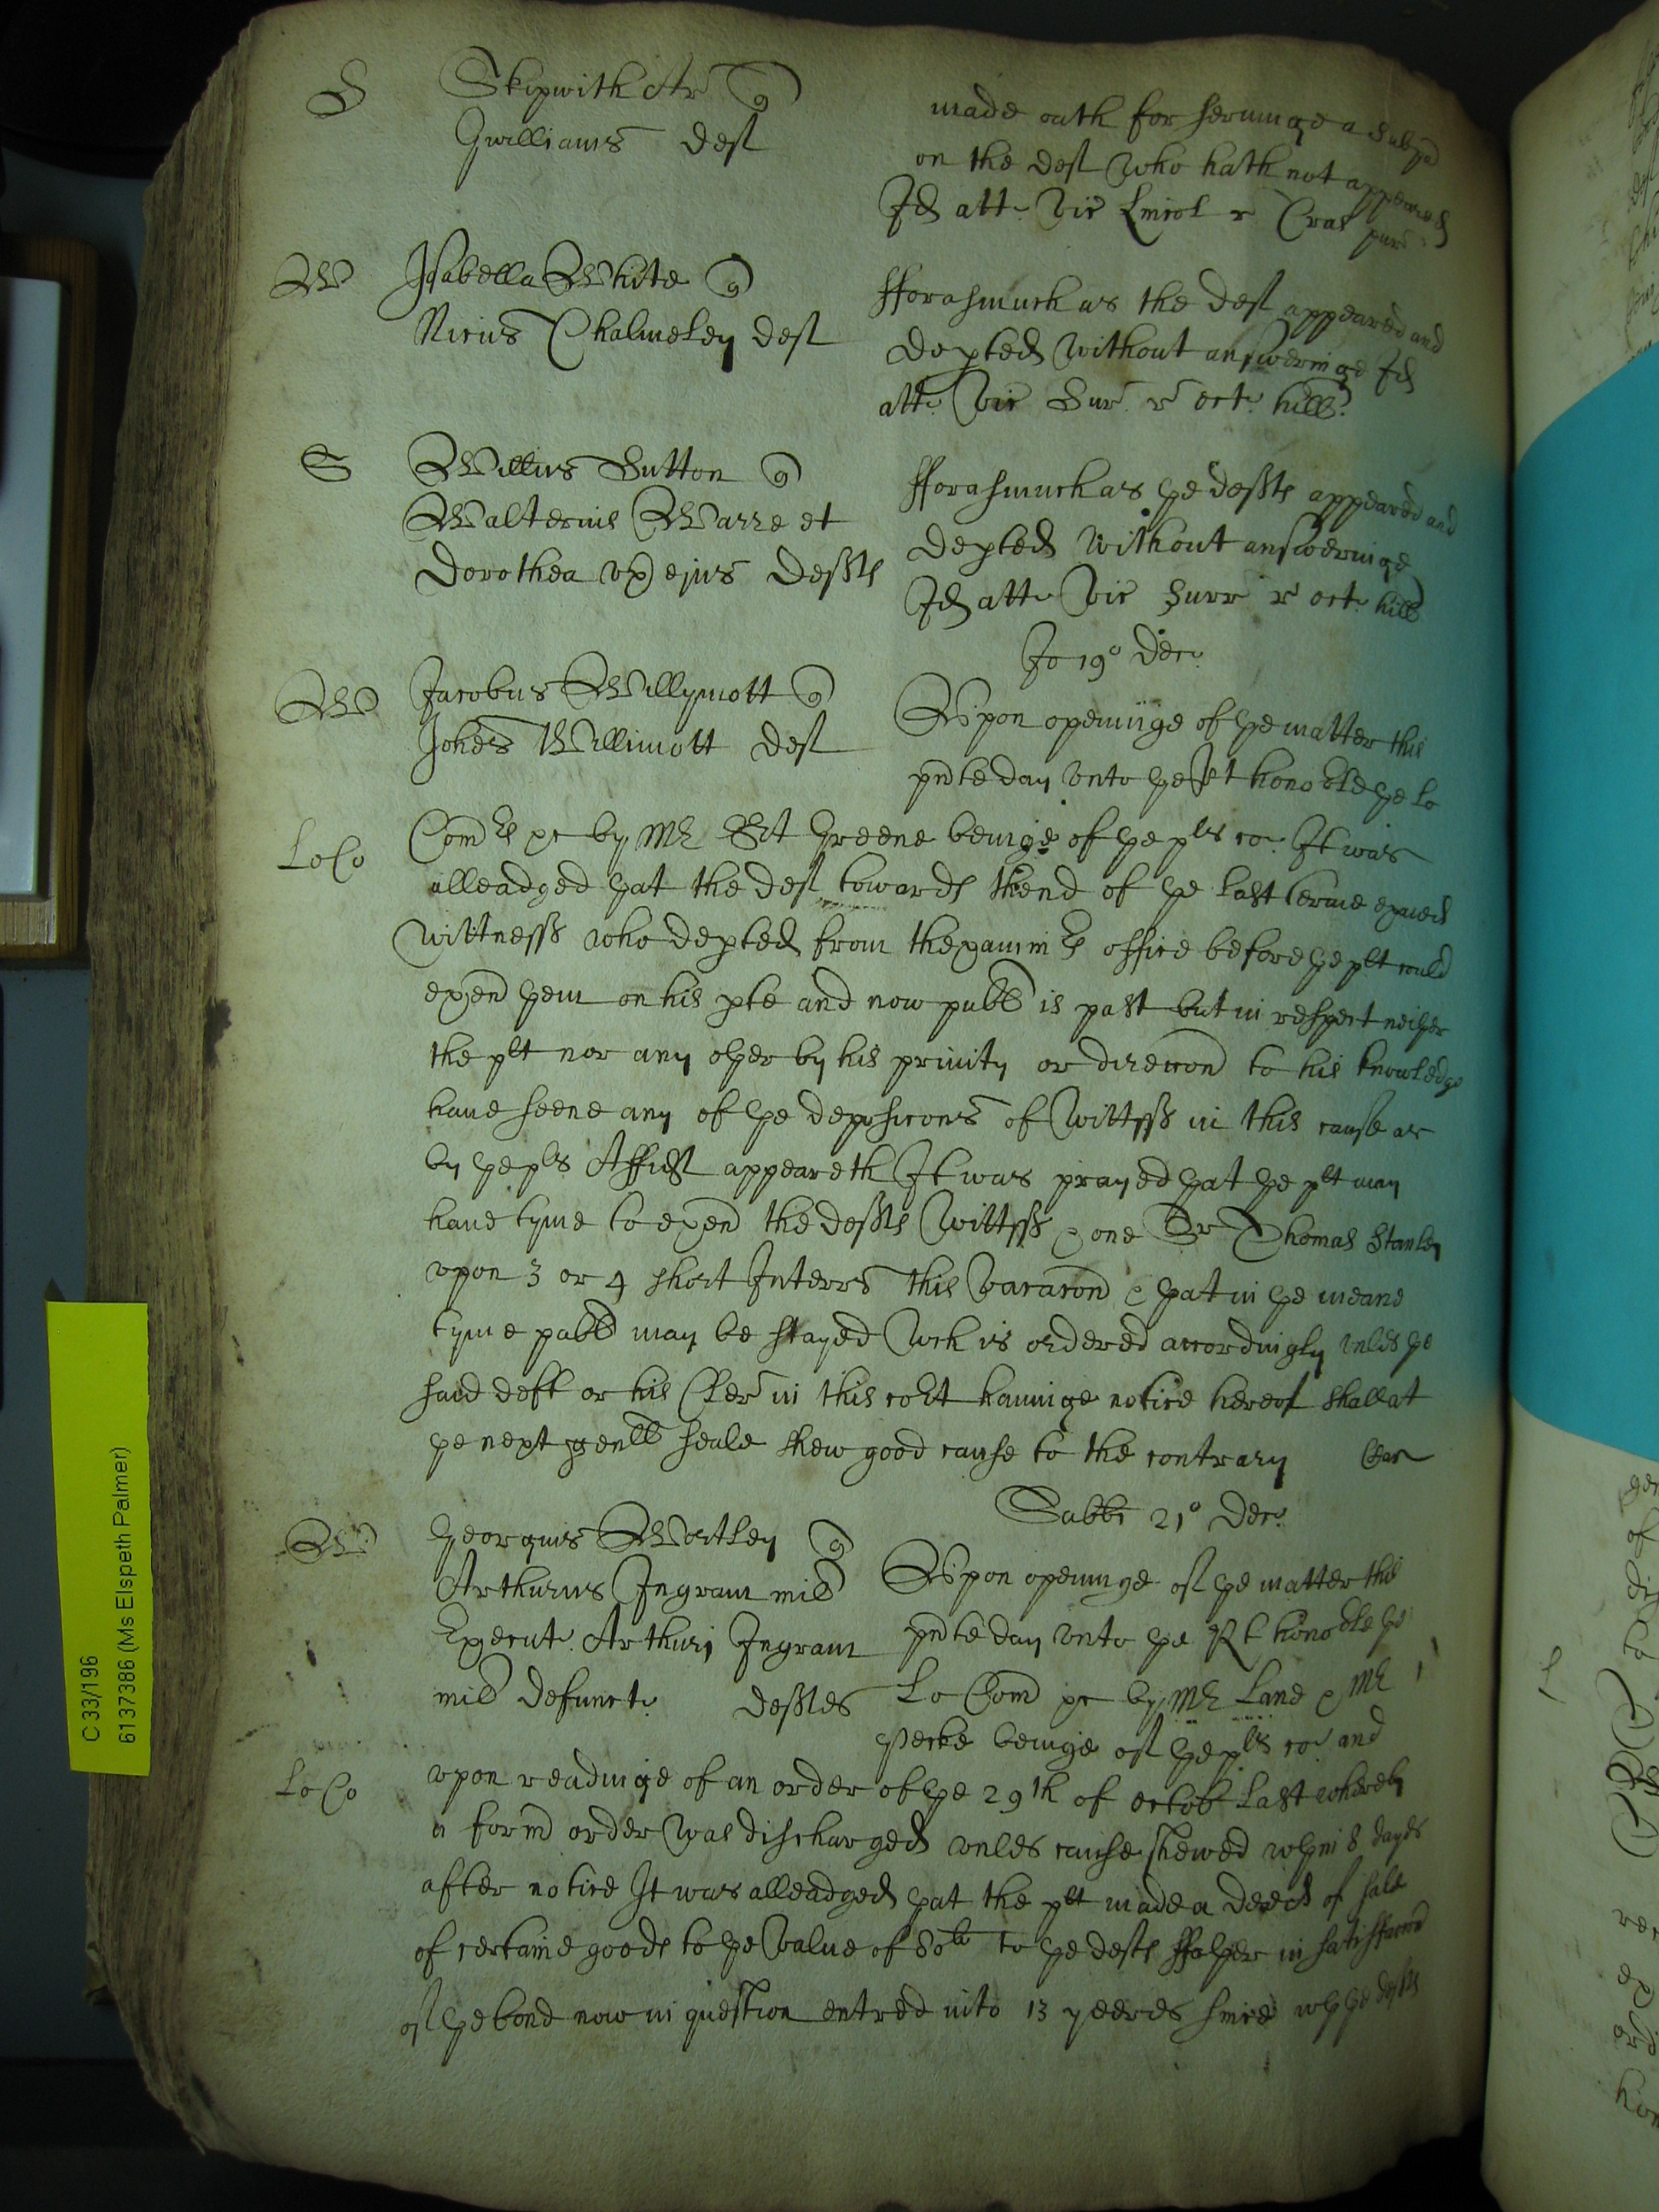 S Skipwith Ar q
Gwilliams deft
made oath for servinge a Subp
on the deft who hath not appeared
Id att. vic Lincol r Cras pur
W Isabella White q
Nicus Chalmeley deft
fforasmuch as the deft appeared and
depted without answeringe Id
att. vic Sur r oct. hill
S Willus Sutton q
Walterus Warre et
Dorothea ux ejus defts
fforasmuch as ye defts appeared and
depted without answeringe
Id att. vic Surr r oct. hill
Jo 19o Dec.
W Jacobus Willymott q
Johes Willimott deft
Upon openinge of ye matter this
pnte day unto ye Rt honoble ye Lo
LoCo Comrs &c by Mr Greene beinge of ye plts co. It was
alleadged yat the deft towards thend of ye last terme exned
wittness who depted from thexaminrs office before ye plt could
exend yem on his pte and now publ is past but in respect neiyer
the plt nor any oyer by his privity or direccon to his knowledge
have seene any of ye deposicons of wittss in this cause as
by ye plts Affidt appeareth It was prayed yat ye plt may
have tyme to exend the defts wittss & one Sr Thomas Stanley
upon 3 or 4 short Interrs this vacacon & yat in ye meane
tyme publ may be stayed wch is ordered accordingly unles ye
said deft or his Cler in this cort havinge notice hereof shall at
ye next genll seale shew good cause to the contrary
Sabbi 21o Dec.
W Georgius Wortley q
Arthurus Ingram mil
Execut. Arthuri Ingram
mil defunct. deftes
Upon openinge of ye matter this
pnte day unto ye Rt honoble ye
Lo Com &c by Mr Lane & Mr
Pecke beinge of ye plts co. and
LoCo upon readinge of an order of ye 29th of octob last whereby
a formd order was discharged unles cause shewed wthin 8 dayes
after notice It was alleadged yat the plt made a deed of sale
of certaine goods to ye value of 80li to ye defts ffayer in satisfaccon
of ye bond now in question entred into 13 yeeres since wch ye defts
C 33/196
6137386 (Ms Elspeth Palmer)